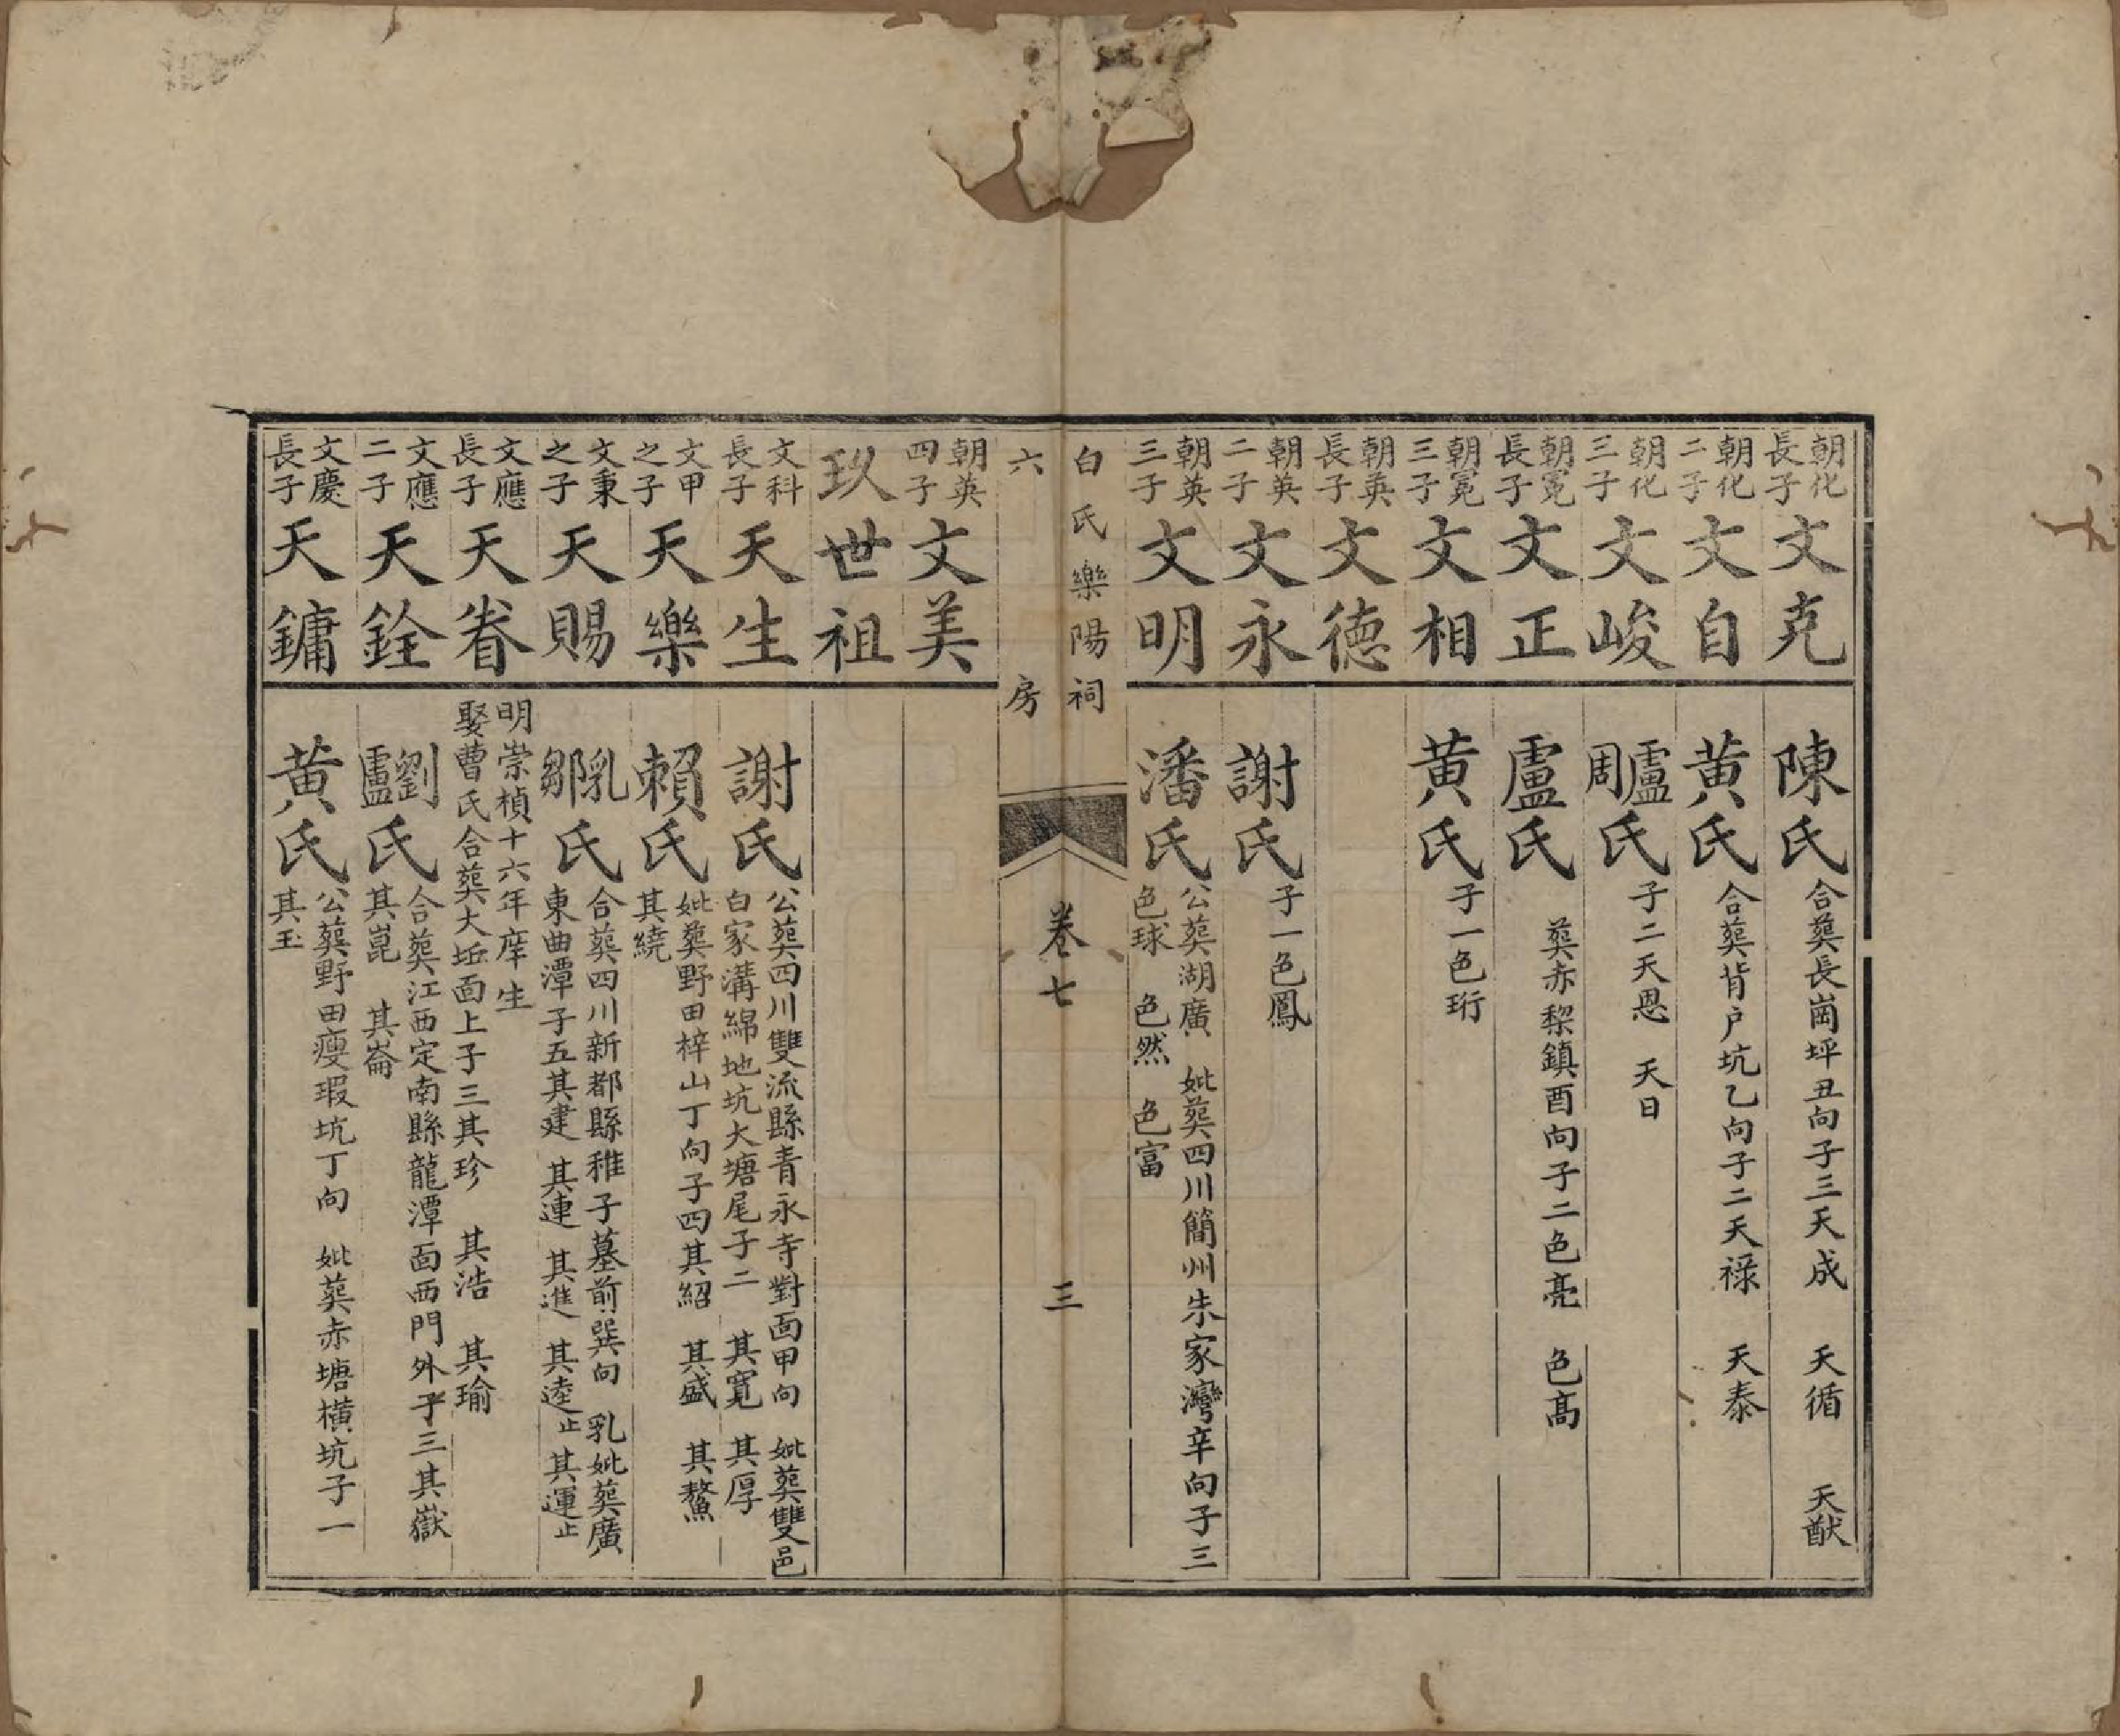 朝化長子
文克
陳氏
合葬長崗坪丑向子三天成 天循 天猷
朝化二子
文自
黄氏
合葬背户坑乙向子二天祿 天泰
朝化三子
文峻
盧周氏
子二天恩 天日
朝冕長子
文正
盧氏
葬赤棃鎮酉向子二色亮 色高
朝冕三子
文相
黄氏
子一色珩
朝英長子
文德
朝英二子
文永
謝氏
子一色鳳
朝英三子
文明
潘氏
公葬湖廣 妣葬四川簡州朱家灣辛向子三
色球 色然 色富
白氏樂陽祠
六房
卷七
三
朝英四子
文美
玖世祖
文科長子
天生
謝氏
公葬四川雙流縣青永寺對面甲向 妣葬雙邑
白家溝綿地坑大塘尾子二 其寬 其厚
文甲之子
天樂
賴氏
妣葬野田梓山丁向子四其紹 其盛 其鰲
其繞
文秉之子
天賜
乳鄒氏
合葬四川新都縣稚子墓前巽向 乳妣葬廣
東曲潭子五其建 其連 其進 其逵止 其運止
文應長子
天眷
明崇楨十六年庠生
娶曹氏合葬大坵面上子三其珍 其浩 其瑜
文應二子
天銓
劉盧氏
合葬江西定南縣龍潭面西門外子三其嶽
其崑 其崙
文慶長子
天鏞
黄氏
公葬野田瘦瑕坑丁向 妣葬赤塘横坑子一
其玉